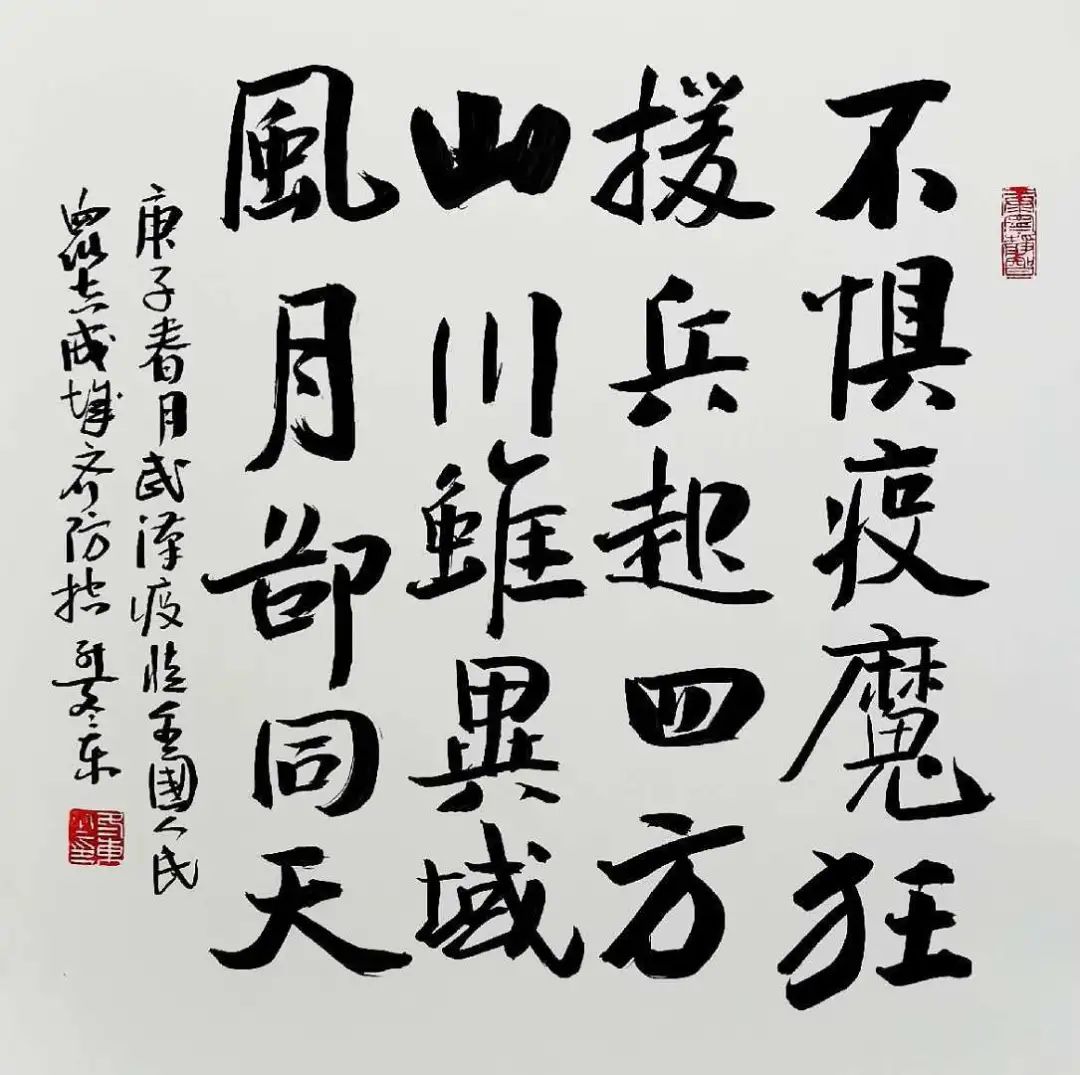 不惧疫魔狂
援兵起四方
山川雖異域
風月卻同天
庚子春月武漢疫情全國人民
眾志成城齐防控 龔冬东